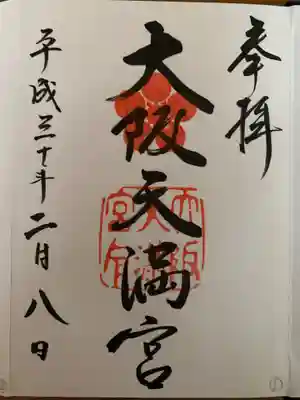 奉拝
大阪天満宮
平成三十年二月八日